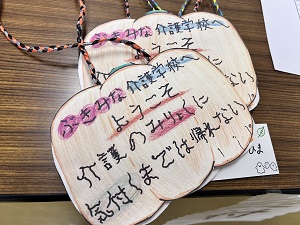 ふきみな 介護学校へ
ようこそ
ふきみな 介護学校へ
ようこそ
介護のみりょくに
気付くまでは帰れない
ひま